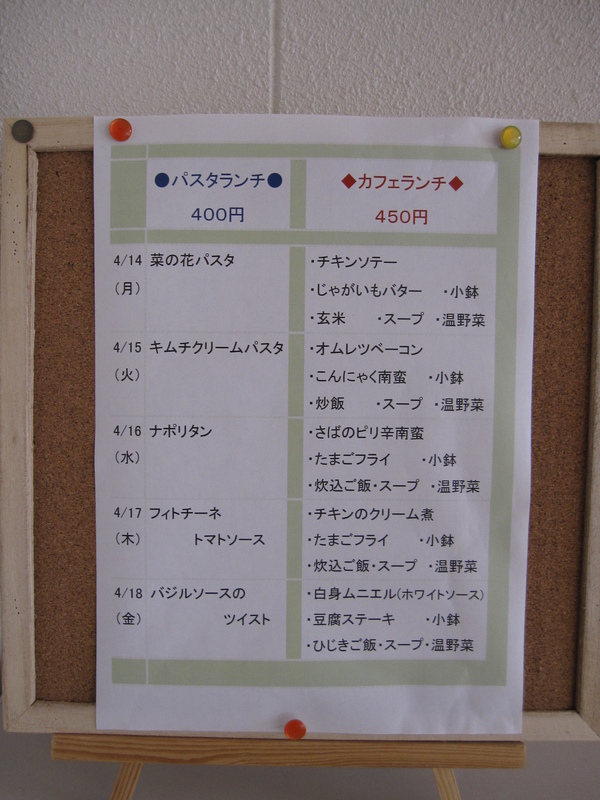 ●パスタランチ●
400円
◆カフェランチ◆
450円
4/14 菜の花パスタ
(月)
・チキンソテー
・じゃがいもバター ・小鉢
・玄米 ・スープ ・温野菜
4/15 キムチクリームパスタ
(火)
・オムレツベーコン
・こんにゃく南蛮 ・小鉢
・炒飯 ・スープ ・温野菜
4/16 ナポリタン
(水)
・さばのピリ辛南蛮
・たまごフライ ・小鉢
・炊込ご飯・スープ ・温野菜
4/17 フィトチーネ
(木) トマトソース
・チキンのクリーム煮
・たまごフライ ・小鉢
・炊込ご飯・スープ ・温野菜
4/18 バジルソースの
(金) ツイスト
・白身ムニエル(ホワイトソース)
・豆腐ステーキ ・小鉢
・ひじきご飯・スープ・温野菜